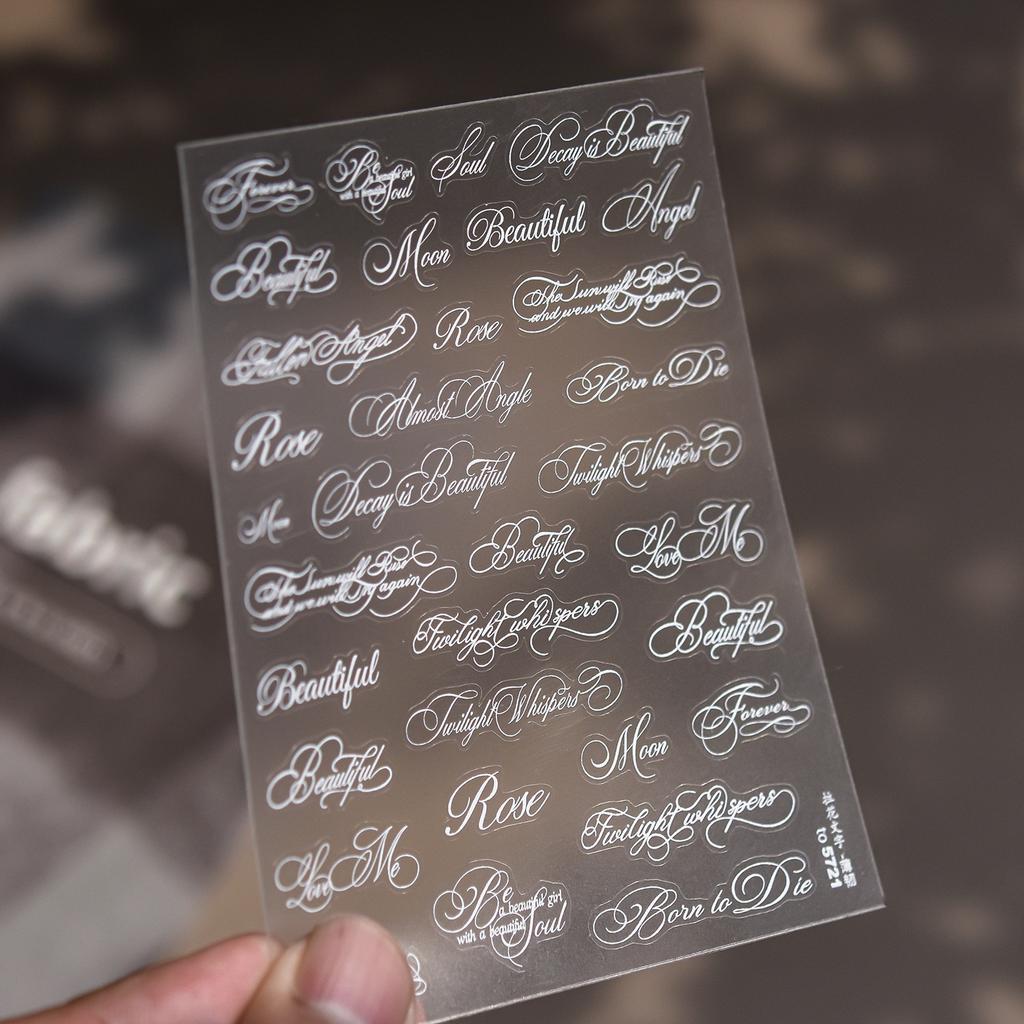 Forever
Be a beautiful girl with a beautiful Soul
Soul
Decay is Beautiful
Beautiful
Moon
Beautiful
Angel
Fallen Angel
Rose
The sun will Rise
and we will Try again
Rose
Almost Angle
Born to Die
Moon
Decay is Beautiful
Twilight Whispers
The sun will Rise
and we will Try again
Beautiful
Love M
Twilight whispers
Beautiful
Beautiful
Twilight Whispers
Forever
Beautiful
Rose
Moon
Twilight whispers
Love M
Be
a beautiful girl
with a beautiful
Soul
Born to Die
to 5721